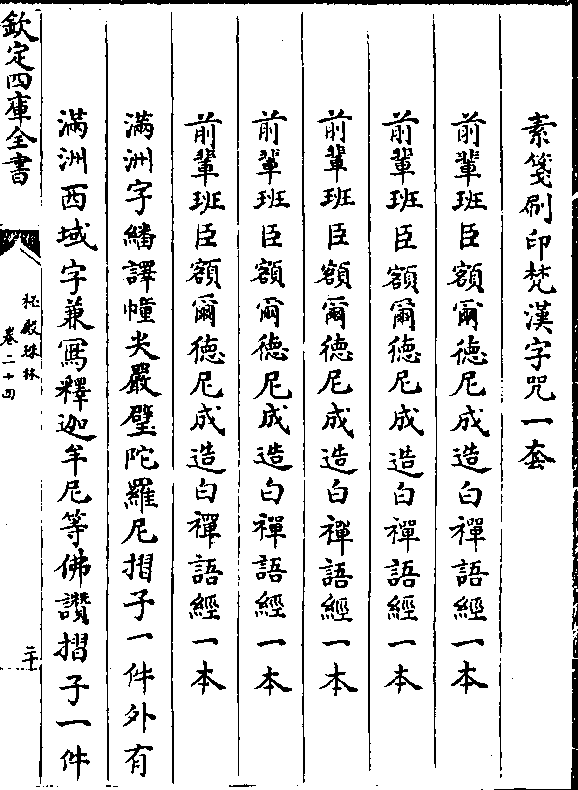 素箋刷印梵漢字咒一套
前輩班臣額爾德尼成造白禪語經一本
前輩班臣額爾德尼成造白禪語經一本
前輩班臣額爾德尼成造白禪語經一本
前輩班臣額爾德尼成造白禪語經一本
前輩班臣額爾德尼成造白禪語經一本
滿洲字繙譯幢尖嚴壁陀羅尼摺子一件外有
滿洲西域字兼寫釋迦牟尼等佛讚摺子一件
欽定四庫全書
秘殿珠林
卷二十四
二十